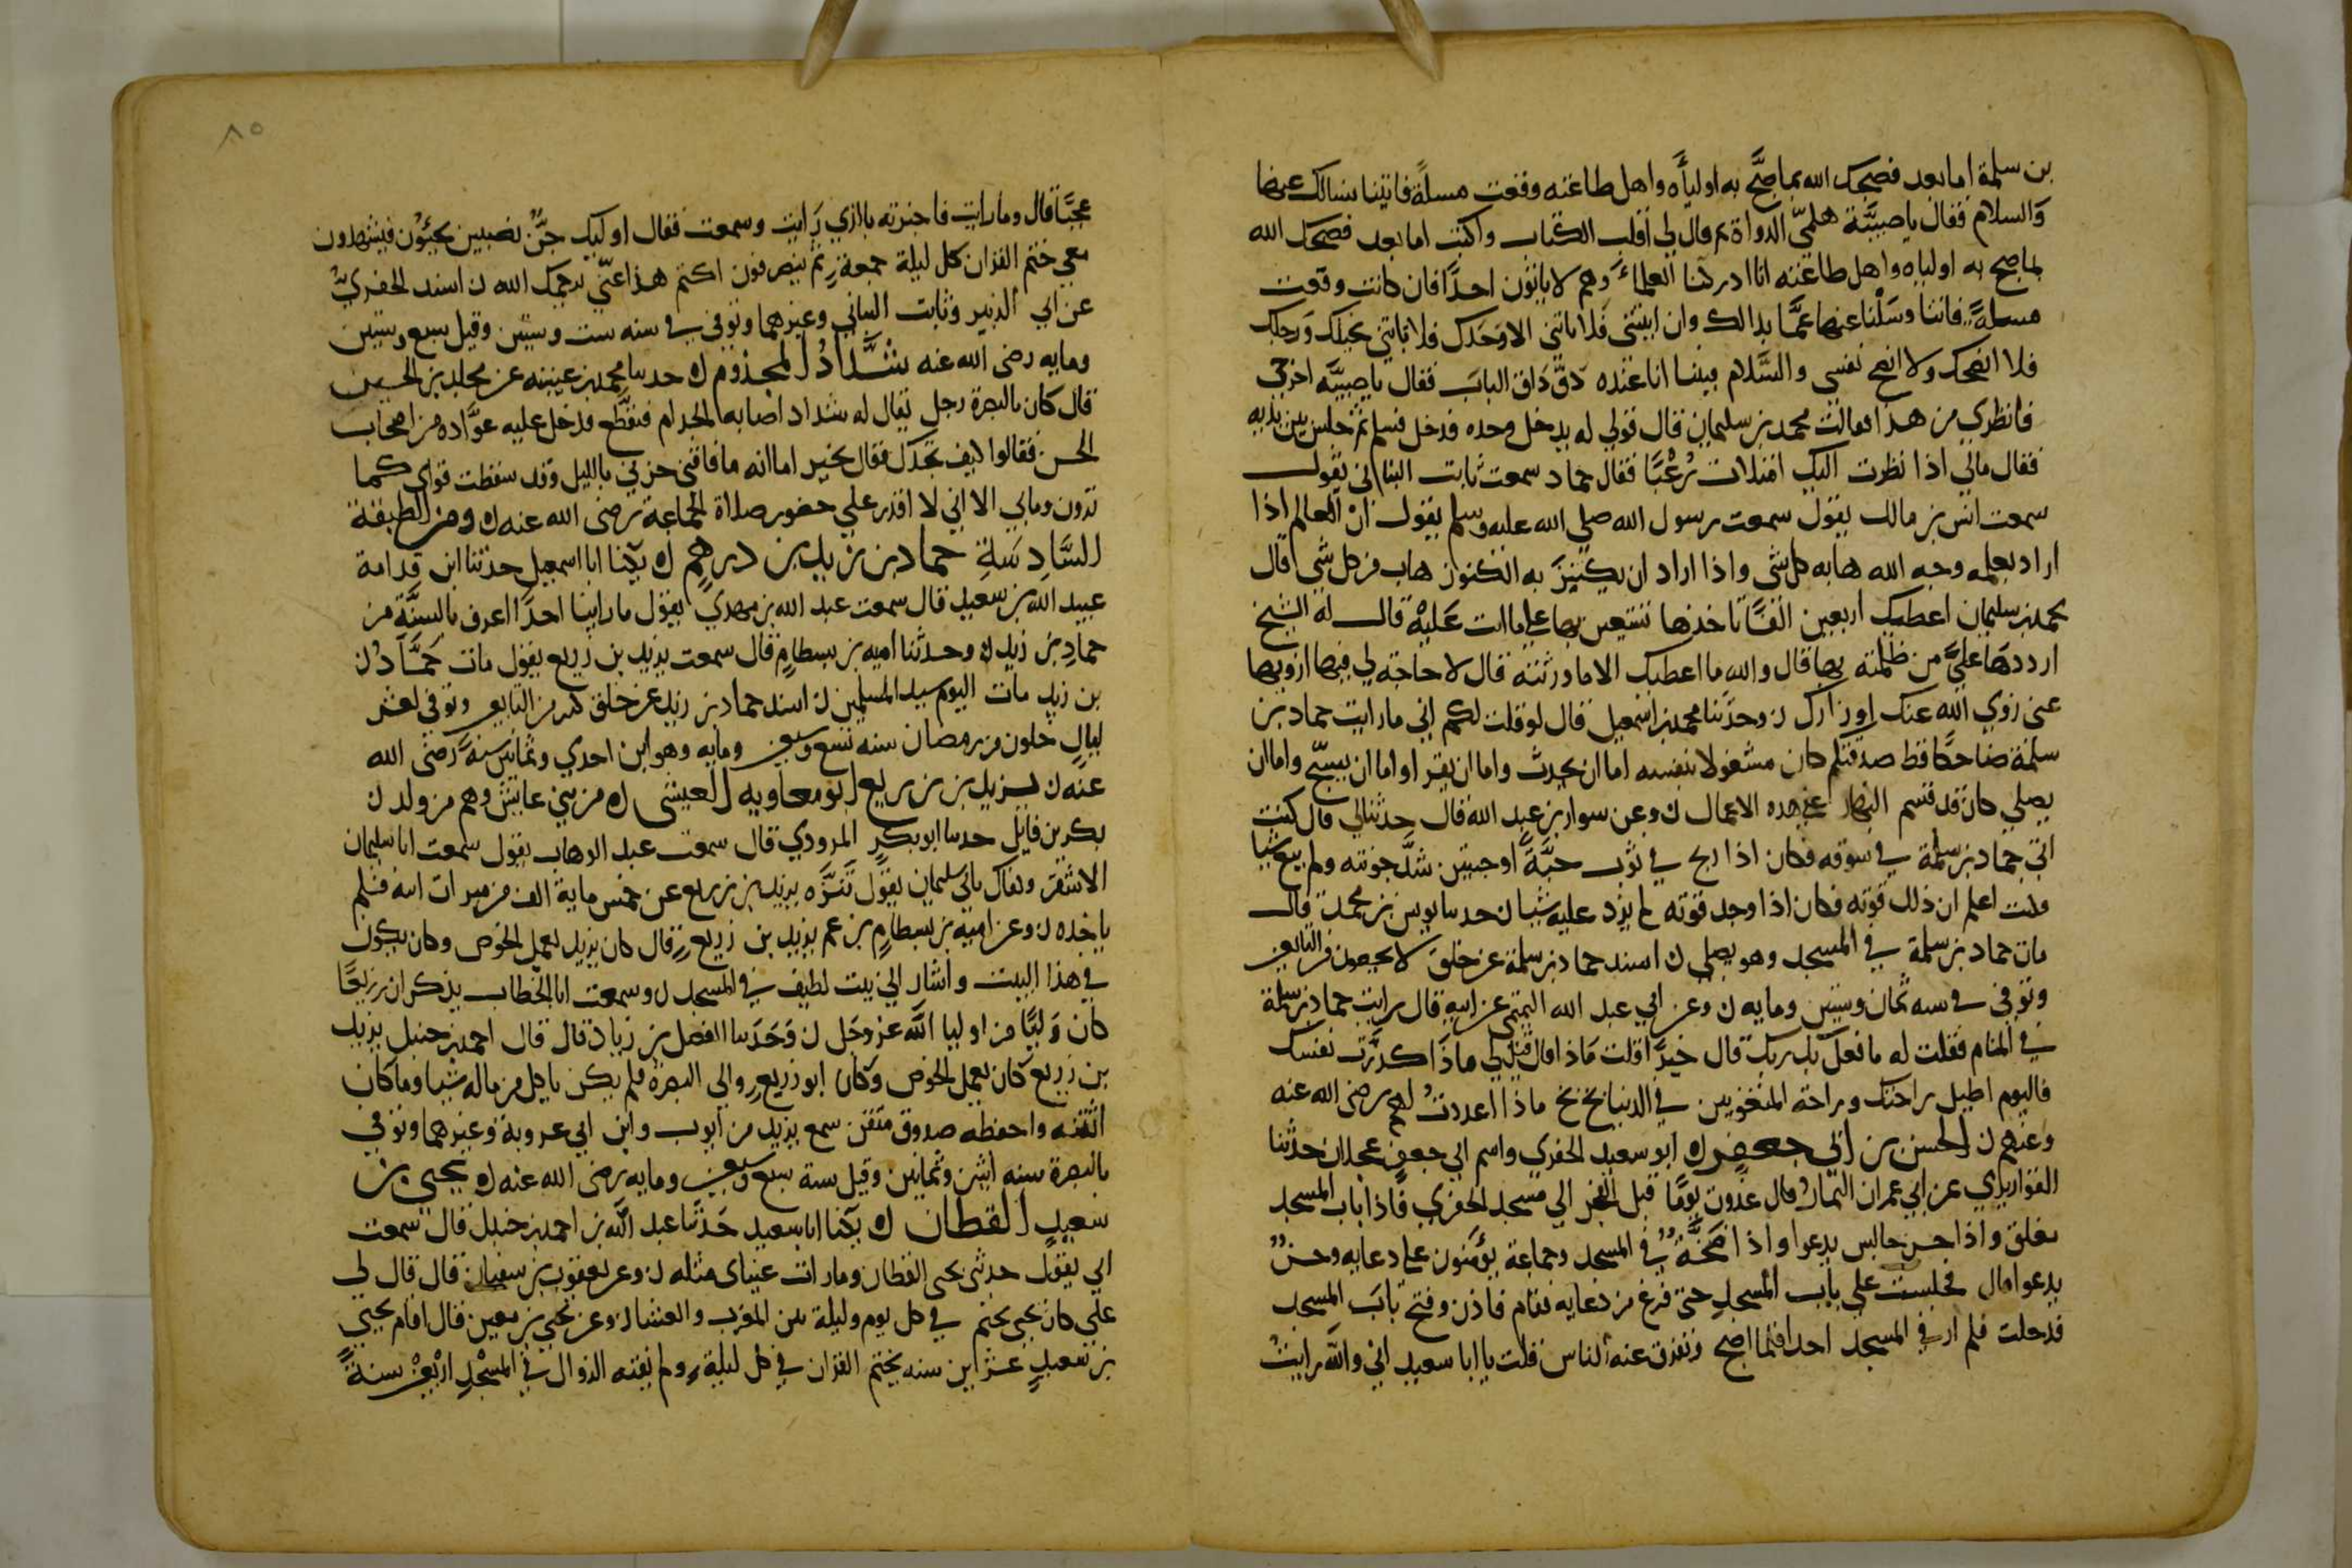 بن سلمة اما بعد فصبحك الله بما صبح به اولياه واهل طاعته وقعت مسلة فاتينا نسالك عنها
والسلام فقال يا صبية هلمي الدواة ثم قال لي اقلب الكتاب واكتب اما بعد فصبحك الله
بما صبح به اولياه واهل طاعته انا ادركنا العلماء وهم لا ياتون احدا فان كانت وقعت
مسلة فاتنا وسلنا عنها عما بدا لك وان اتيتني فلا تاتني الا وحدك فلا تاتني بخيلك ورجلك
فلا انصحك ولا انصح نفسي والسلام فبينا انا عنده دق داق الباب فقال يا صبية اخرجي
فانظري من هذا فقالت محمد بن سليمان قال قولي له يدخل وحده فدخل فسلم ثم جلس بين يديه
فقال مالي اذا نظرت اليك امتلات رعبا فقال حماد سمعت ثابت البناني يقول
سمعت انس بن مالك يقول سمعت رسول الله صلي الله عليه وسلم يقول ان العالم اذا
اراد بعلمه وجه الله هابه كل شي واذا اراد ان يكتنز به الكنوز هاب من كل شي قال
محمد بن سليمان اعطيك اربعين الفا تاخذها تستعين بها علي ما انت عليه قال له الشيخ
ارددها علي من ظلمته بها قال والله ما اعطيك الا ما ورثته قال لا حاجة لي فيها ازويها
عني زوي الله عنك اوزارك ن وحدثنا محمد بن اسمعيل قال لو قلت لكم اني ما رايت حماد بن
سلمة ضاحكا قط صدقتكم كان مشغولا بنفسه اما ان يحدث واما ان يقرا واما ان يسبح واما ان
يصلي كان قد قسم النهار علي هذه الاعمال ن وعن سوار بن عبد الله قال حدثنا ابي قال كنت
اتي حماد بن سلمة في سوقه فكان اذا ربح في ثوب حبة او حبتين شد جونته ولم يبع شيا
قلت اعلم ان ذلك قوته فكان اذا وجد قوته لم يزد عليه شيا ن حدثنا يونس بن محمد قال
مات حماد بن سلمة في المسجد وهو يصلي ن اسند حماد بن سلمة عن خلق لا يحصون من التابعين
وتوفي في سنه ثمان وستين ومايه ن وعن ابي عبد الله التميمي عن ابيه قال رايت حماد بن سلمة
في المنام فقلت له ما فعل بك ربك قال خيرا قلت ماذا قال قيل لي ماذا كدرت نفسك
فاليوم اطيل راحتك وراحة المتعوبين في الدنيا بخ بخ ماذا اعددت لهم رضي الله عنه
وعنهم ن الحسن بن ابي جعفر ن ابو سعيد الحفري واسم ابي جعفر عجلان حدثنا
القواريري عن ابي عمران التمار قال غدوت يوما قبل الفجر الي مسجد الحفري فاذا باب المسجد
مغلق واذا حسن جالس يدعوا واذا ضجة في المسجد وجماعة يؤمنون علي دعايه وحسن
يدعوا قال فجلست علي باب المسجد حتي فرغ من دعايه فقام فاذن وفتح باب المسجد
فدخلت فلم ار في المسجد احدا فلما اصبح وتفرق عنه الناس قلت يا ابا سعيد اني والله رايت
٨٥
عجبا قال وما رايت فاخبرته بالذي رايت وسمعت فقال اوليك جن نصيبين يجيؤن فيشهدون
معي ختم القران كل ليلة جمعة ثم ينصرفون اكتم هذا عني يرحمك الله ن اسند الحفري
عن ابي الزبير وثابت البناني وغيرهما وتوفي في سنه ست وستين وقيل سبع وستين
ومايه رضي الله عنه شداد المجذوم ن حدثنا محمد بن عيينه عن مخلد بن الحسين
قال كان بالبصرة رجل يقال له شداد اصابه الجذام فتقطع فدخل عليه عواده من اصحاب
الحسن فقالوا كيف تجدك فقال بخير اما انه ما فاتني حزبي بالليل وقد سقطت قواي كما
ترون وما بي الا اني لا اقدر علي حضور صلاة الجماعة رضي الله عنه ن ومن الطبقة
السادسة حماد بن زيد بن درهم ن يكنا ابا اسمعيل حدثنا ابن قدامة
عبيد الله بن سعيد قال سمعت عبد الله بن مهدي يقول ما راينا احدا اعرف بالسنة من
حماد بن زيد ن وحدثنا اميه بن بسطام قال سمعت يزيد بن زريع يقول مات حماد ن
بن زيد مات اليوم سيد المسلمين ن اسند حماد بن زيد عن خلق كثير من التابعين وتوفي لعشر
ليال خلون من رمضان سنه تسع وسبعين ومايه وهو ابن احدي وثمانين سنة رضي الله
عنه ن يزيد بن زريع ابو معاويه العيشي ن من بني عايش وهم من ولد ن
بكر بن قايل حدثنا ابو بكر المروذي قال سمعت عبد الوهاب يقول سمعت ابا سليمان
الاشقر وكفاك بابي سليمان يقول تنزه يزيد بن زريع عن خمس ماية الف من ميراث ابيه فلم
ياخذه ن وعن اميه بن بسطام بن عم يزيد بن زريع قال كان يزيد يعمل الخوص وكان يكون
في هذا البيت واشار الي بيت لطيف في المسجد ن وسمعت ابا الخطاب يذكر ان زريعا
كان وليا من اوليا الله عز وجل ن وحدثنا الفضل بن زياد قال قال احمد بن حنبل يزيد
بن زريع كان يعمل الخوص وكان ابو زريع والي البصرة فلم يكن ياكل من ماله شيا وما كان
اتقنه واحفظه صدوق متقن سمع يزيد من ايوب وابن ابي عروبة وغيرهما وتوفي
بالبصرة سنه اثنين وثمانين وقيل سنة سبع وسبعين ومايه رضي الله عنه ن يحيي بن
سعيد القطان ن يكنا ابا سعيد حدثنا عبد الله بن احمد بن حنبل قال سمعت
ابي يقول حدثني يحيي القطان وما رات عيناي مثله ن وعن يعقوب بن سفيان قال قال لي
علي كان يحيي يختم في كل يوم وليلة بين المغرب والعشا ن وعن يحيي بن معين قال اقام يحيي
بن سعيد عشرين سنه يختم القران في كل ليلة ولم يفته الزوال في المسجد اربعين سنة